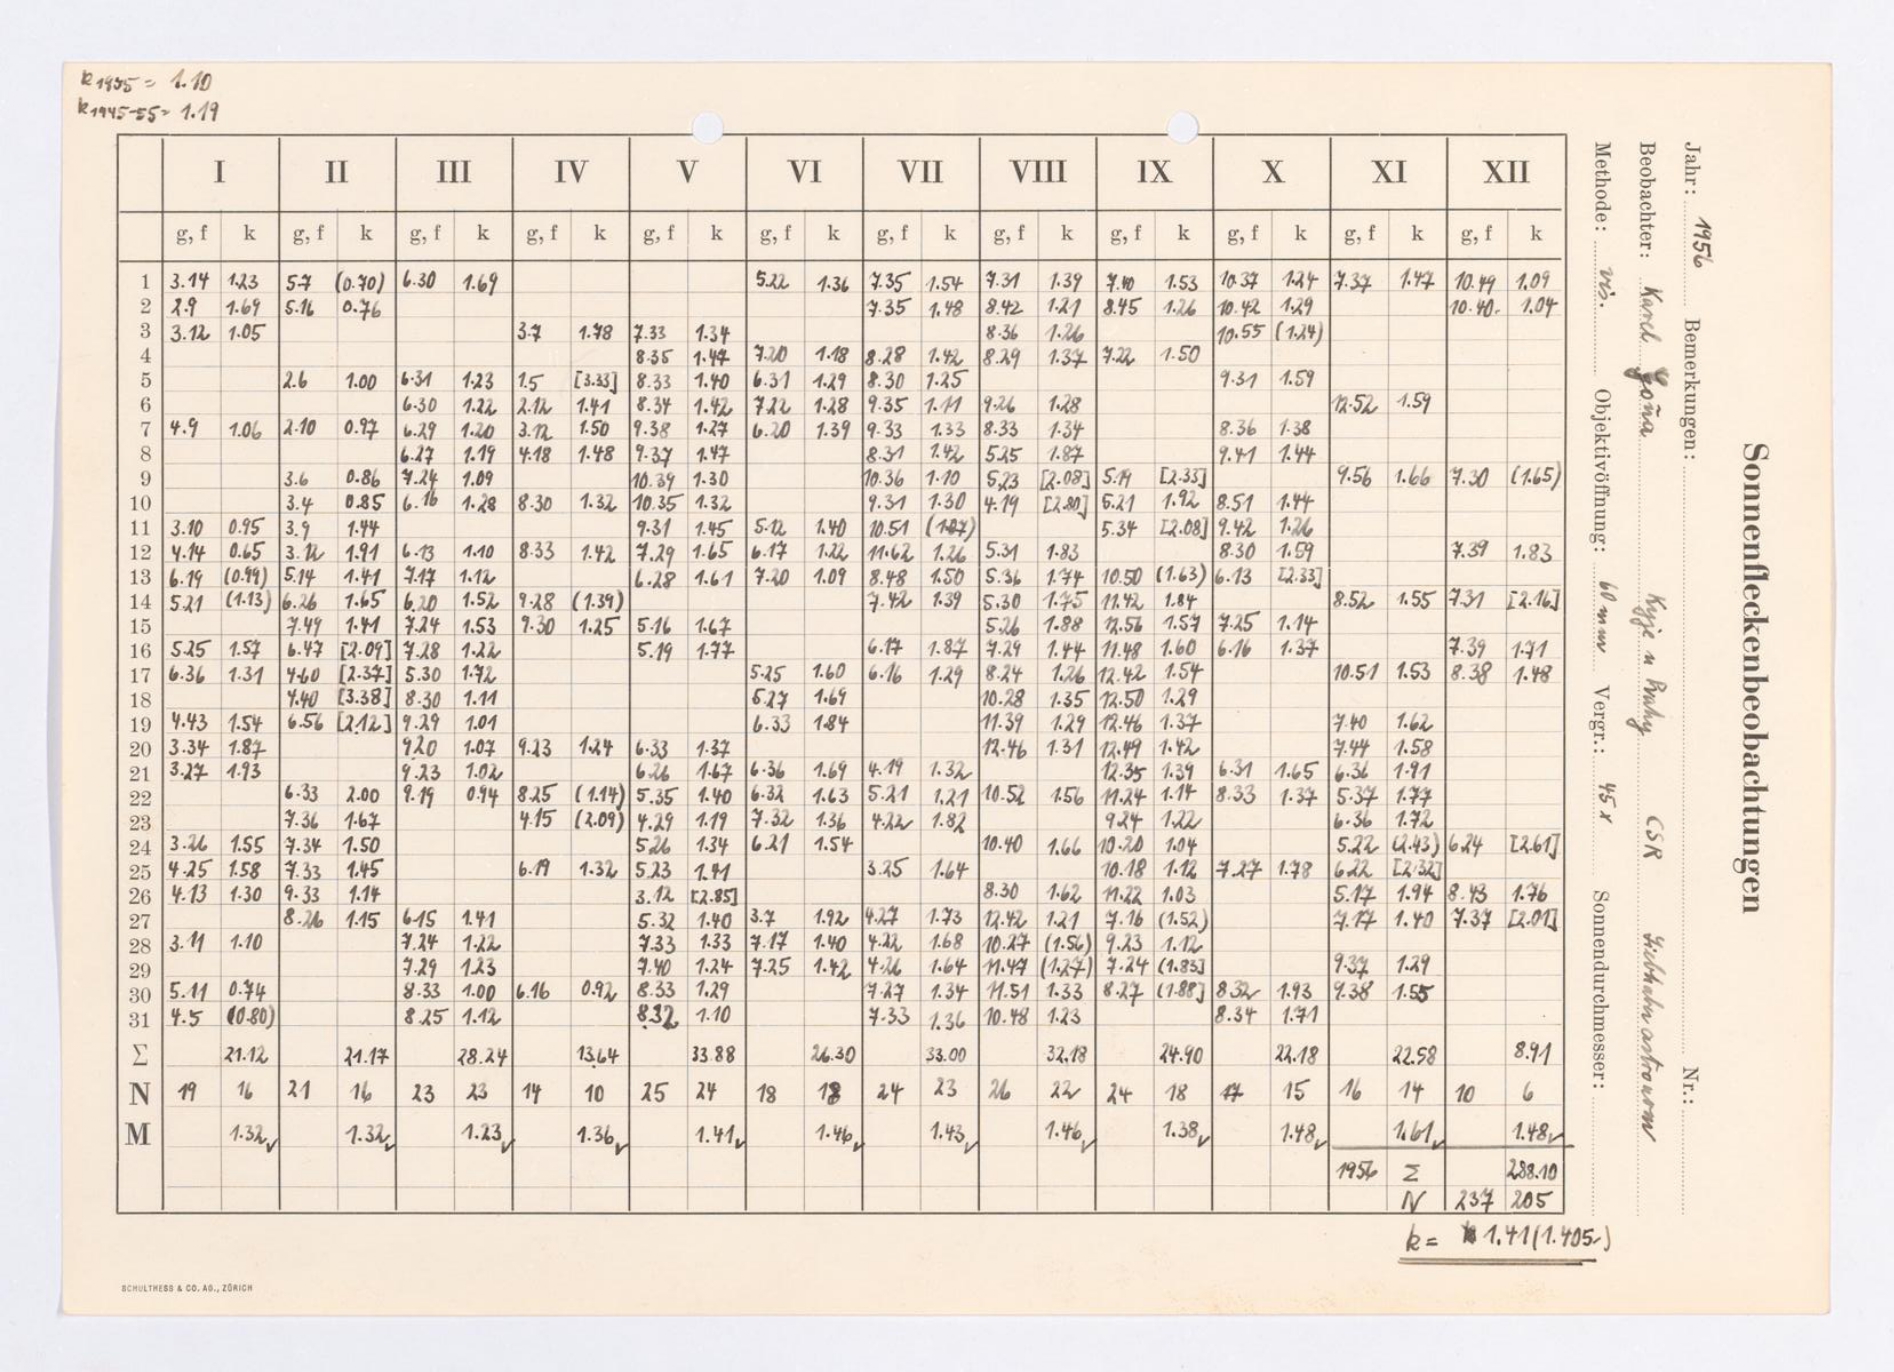 k1935 = 1.10
k1945-55 = 1.19
I II III IV V VI VII VIII IX X XI XII
g, f k g, f k g, f k g, f k g, f k g, f k g, f k g, f k g, f k g, f k g, f k g, f k
1 3.14 1.23 5.7 (0.70) 6.30 1.69 5.22 1.36 7.35 1.54 7.31 1.39 7.40 1.53 10.37 1.24 7.37 1.47 10.49 1.09
2 2.9 1.69 5.16 0.76 7.35 1.48 8.42 1.21 8.45 1.26 10.42 1.29 10.40. 1.04
3 3.12 1.05 3.7 1.78 7.33 1.34 8.36 1.26 10.55 (1.24)
4 8.35 1.47 7.20 1.18 8.28 1.42 8.29 1.37 7.22 1.50
5 2.6 1.00 6.31 1.23 1.5 [3.33] 8.33 1.40 6.31 1.29 8.30 1.25 9.31 1.59
6 6.30 1.22 2.12 1.41 8.34 1.42 7.22 1.28 9.35 1.11 9.26 1.28 12.52 1.59
7 4.9 1.06 2.10 0.97 6.29 1.20 3.12 1.50 9.38 1.27 6.20 1.39 9.33 1.33 8.33 1.34 8.36 1.38
8 6.27 1.19 4.18 1.48 9.37 1.47 8.31 1.42 5.25 1.87 9.41 1.44
9 3.6 0.86 7.24 1.09 10.39 1.30 10.36 1.10 5.23 [2.08] 5.19 [2.33] 9.56 1.66 7.30 (1.65)
10 3.4 0.85 6.16 1.28 8.30 1.32 10.35 1.32 9.31 1.30 4.19 [2.80] 5.21 1.92 8.51 1.44
11 3.10 0.95 3.9 1.44 9.31 1.45 5.12 1.40 10.51 (1.07) 5.34 [2.08] 9.42 1.26
12 4.14 0.65 3.12 1.91 6.13 1.10 8.33 1.42 7.29 1.65 6.17 1.22 11.62 1.26 5.31 1.83 8.30 1.59 7.39 1.83
13 6.19 (0.99) 5.14 1.41 7.17 1.12 6.28 1.61 7.20 1.09 8.48 1.50 5.36 1.74 10.50 (1.63) 6.13 [2.33]
14 5.21 (1.13) 6.26 1.65 6.20 1.52 9.28 (1.39) 7.42 1.39 5.30 1.75 11.42 1.84 8.52 1.55 7.31 [2.16]
15 7.49 1.41 7.24 1.53 9.30 1.25 5.16 1.67 5.26 1.88 12.56 1.57 7.25 1.14
16 5.25 1.57 6.47 [2.09] 7.28 1.22 5.19 1.77 6.17 1.87 7.29 1.44 11.48 1.60 6.16 1.37 7.39 1.71
17 6.36 1.31 4.60 [2.37] 5.30 1.72 5.25 1.60 6.16 1.29 8.24 1.26 12.42 1.54 10.51 1.53 8.38 1.48
18 4.40 [3.38] 8.30 1.11 5.27 1.69 10.28 1.35 12.50 1.29
19 4.43 1.54 6.56 [2.12] 9.29 1.01 6.33 1.84 11.39 1.29 12.46 1.37 7.40 1.62
20 3.34 1.87 9.20 1.07 9.23 1.24 6.33 1.37 12.46 1.31 12.49 1.42 7.44 1.58
21 3.27 1.93 9.23 1.02 6.26 1.67 6.36 1.69 4.19 1.32 12.35 1.39 6.31 1.65 6.36 1.91
22 6.33 2.00 9.19 0.94 8.25 (1.14) 5.35 1.40 6.32 1.63 5.21 1.21 10.52 1.56 11.24 1.14 8.33 1.37 5.37 1.77
23 7.36 1.67 4.15 (2.09) 4.29 1.19 7.32 1.36 4.22 1.82 9.24 1.22 6.36 1.72
24 3.26 1.55 7.34 1.50 5.26 1.34 6.21 1.54 10.40 1.66 10.20 1.04 5.22 (2.43) 6.24 [2.61]
25 4.25 1.58 7.33 1.45 6.19 1.32 5.23 1.41 3.25 1.64 10.18 1.12 7.27 1.78 6.22 [2.32]
26 4.13 1.30 9.33 1.14 3.12 [2.85] 8.30 1.62 11.22 1.03 5.17 1.94 8.43 1.76
27 8.26 1.15 6.15 1.41 5.32 1.40 3.7 1.92 4.27 1.73 12.42 1.21 7.16 (1.52) 7.17 1.40 7.37 [2.01]
28 3.11 1.10 7.24 1.22 7.33 1.33 7.17 1.40 4.22 1.68 10.27 (1.56) 9.23 1.12
29 7.29 1.23 7.40 1.24 7.25 1.42 4.26 1.64 11.47 (1.27) 7.24 (1.83] 9.37 1.29
30 5.11 0.74 8.33 1.00 6.16 0.92 8.33 1.29 7.27 1.34 11.51 1.33 8.27 (1.88] 8.32 1.93 9.38 1.55
31 4.5 (0.80) 8.25 1.12 8.32 1.10 7.33 1.36 10.48 1.23 8.34 1.71
Σ 21.12 21.17 28.24 13.64 33.88 26.30 33.00 32.18 24.90 22.18 22.58 8.91
N 19 16 21 16 23 23 14 10 25 24 18 18 24 23 26 22 24 18 17 15 16 14 10 6
M 1.32 1.32 1.23 1.36 1.41 1.46 1.43 1.46 1.38 1.48 1.61 1.48
1956 Σ 288.10
N 237 205
k = 1.41 (1.405)
SCHULTHESS & CO. AG., ZÜRICH
Sonnenfleckenbeobachtungen
Jahr: 1956 Bemerkungen: Nr.:
Beobachter: Karel Goňa Kyje u Prahy ČSR
Methode: vis. Objektivöffnung: 60 mm Vergr.: 45 x Sonnendurchmesser: